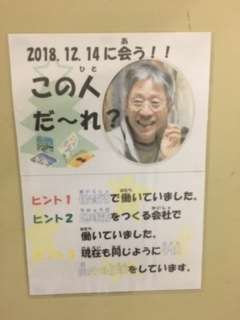 2018.12.14に会う！！
この人
だ～れ？
ヒント1 で働いていました。
ヒント2 をつくる会社で
働いていました。
現在も同じように
をしています。